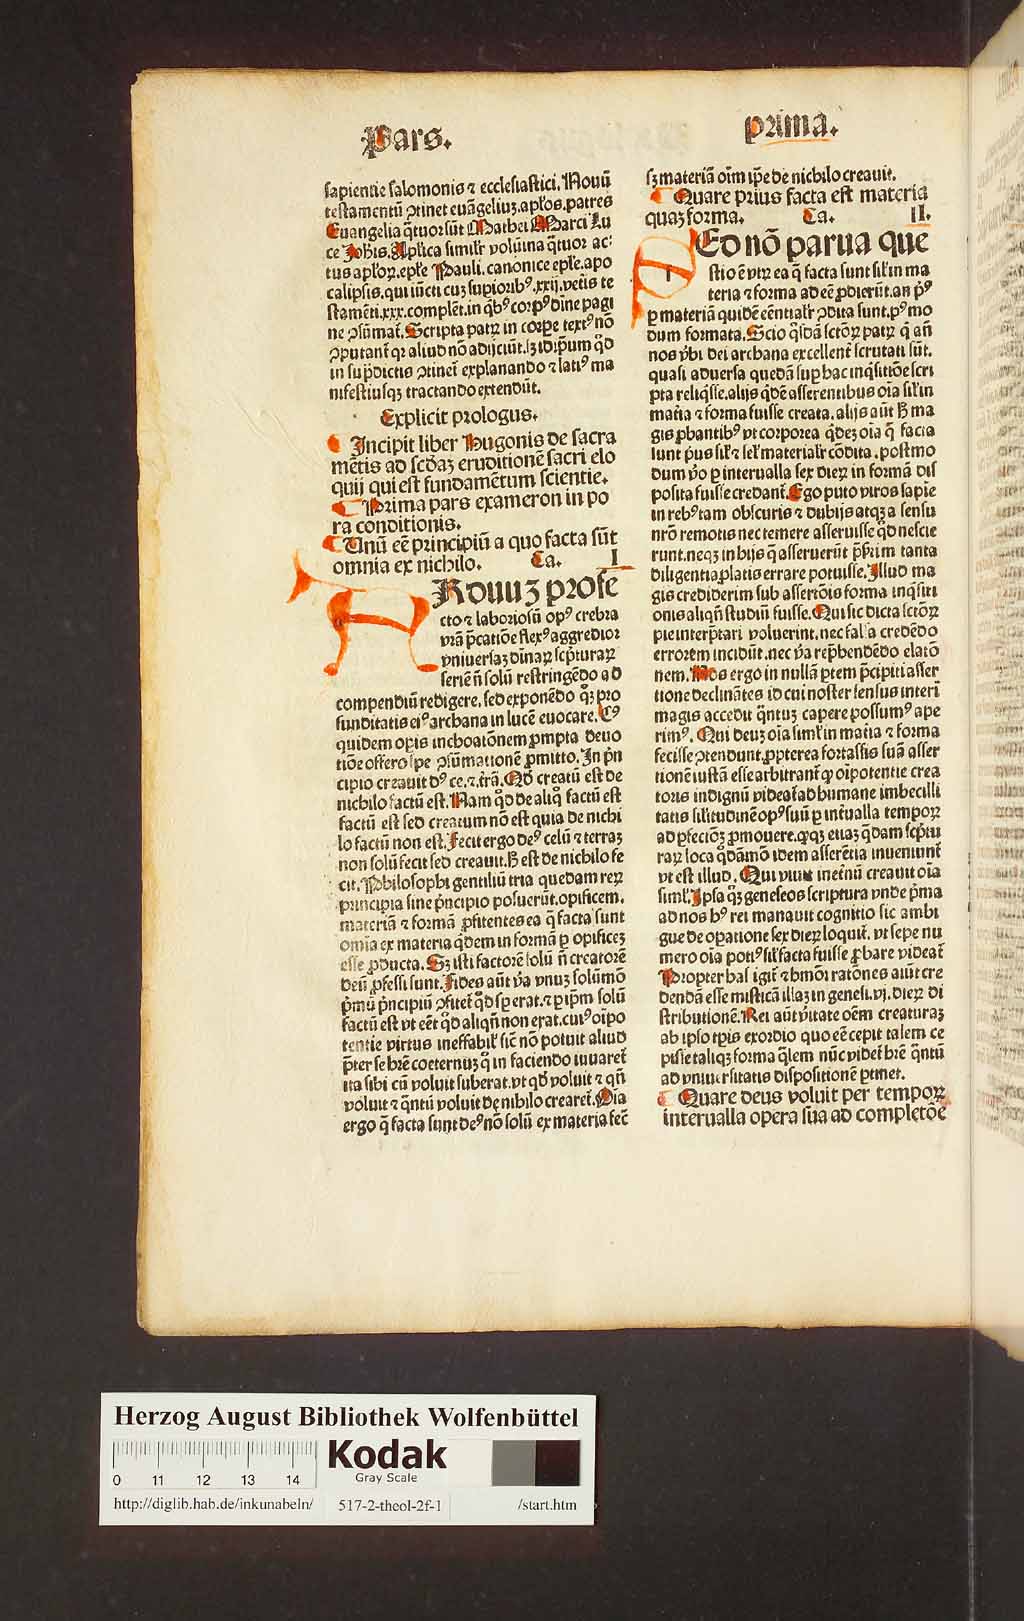 Pars.
prima.
sapientie salomonis ⁊ ecclesiastici. Nouū
testamentū ꝯtinet euāgeliuꝫ. apl̄os. patres
Euangelia q̄tuor sūt Mathei Marci Lu
ce Joh̄is. Apl̄ica simil̄r volūina q̄tuor ac⸗
tus apl̄oꝝ. epl̄e Pauli. canonice epl̄e. apo
calipsis. qui iūcti cuꝫ supiorib⁹. xxij. veṫis te
stamēti. xxx. complēt. in q̄b⁹ corp⁹ dīne pagi
ne ꝯsūmat̄. Scripta patꝝ in corpe text⁹ nō
ꝯputant̄ qꝛ aliud nō adijciūt. sꝫ idip̄um qd̄
in sup̄dictis ꝯtinet̄ explanando ⁊ lati⁹ ma
nifestiusqꝫ tractando extendūt.
Explicit prologus.
Incipit liber Hugonis de sacra
mētis ad scd̄aꝫ eruditionē sacri elo
quij qui est fundamētum scientie.
Prima pars exameron in po
ra conditionis.
Unū eē principiū a quo facta sūt
omnia ex nichilo. Ca. I
ARduuꝫ profe
cto ⁊ laboriosū op⁹ crebra
vrā p̄catiōe flex⁹ aggredior
vniuersaꝫ dīnaꝝ scp̄turaꝝ
seriē n̄ solū restringēdo ad
compendiū redigere. sed exponēdo qꝫ pro
funditatis ei⁹ archana in lucē euocare. C⁹
quidem opis inchoatōnem prompta deuo
tiōe offero spe ꝯsūmationē promitto. In pn̄
cipio creauit d⁹ ce. ⁊ t̄rā. Qd̄ creatū est de
nichilo factū est. Nam qd̄ de aliq̄ factū est
factū est sed creatum nō est quia de nichi
lo factū non est. Fecit ergo de⁹ celū ⁊ terraꝫ
non solū fecit sed creauit. H̄ est de nichilo fe
cit. Philosophi gentiliū tria quedam reꝝ
principia sine p̄ncipio posuerūt. opificem.
materiā ⁊ formā. ꝓfitentes ea q̄ facta sunt
omnia ex materia q̄dem in formā ꝑ opificeꝫ
esse ꝓducta. Sꝫ isti factorē solū n̄ creatorē
deū ꝓfessi sunt. Fides aūt v̄a vnuꝫ solūmō
p̄mū p̄ncipiū ꝓfitet̄ qd̄ sp erat. ⁊ ꝑ ip̄m solū
factū est vt eēt qd̄ aliqn̄ non erat. cui⁹ oīpo
tentie virtus ineffabil̄ sic̄ nō potuit aliud
p̄ter se hr̄e coeternuꝫ q̄ in faciendo iuuaret̄
ita sibi cū voluit suberat. vt qd̄ voluit ⁊ qn̄
voluit ⁊ q̄ntū voluit de nihilo crearet̄. Oīa
ergo q̄ facta sunt de⁹ nō solū ex materia fec̄
sꝫ materiā oīm ip̄e de nichilo creauit.
Quare prius facta est materia
quaꝫ forma. Ca. II.
SEd nō parua que
stio ē vtꝝ ea q̄ facta sunt sil̄ in ma
teria ⁊ forma ad eē ꝓdierūt. an p̄⁹
ꝑ materiā quidē eēntialr̄ ꝯdita sunt. p⁹ mo
dum formata. Scio q̄sdā sctōꝝ patꝝ q̄ an̄
nos v̄bi dei archana excellent̄ scrutati sūt.
quasi aduersa quedā sup hac inq̄sitiōe scri
pta reliq̄sse. alijs q̄dē asserentibus oīa sil̄ in
mat̄ia ⁊ forma fuisse creata. alijs aūt h̄ ma
gis ꝓbantib⁹ vt corporea q̄deꝫ oīa q̄ facta
sunt p̄us sil̄ ⁊ sel̄ materialr̄ cōdita. postmo
dum v̄o ꝑ interualla sex dieꝝ in formā dis
posita fuisse credant̄. Ego puto viros sapīe
in reb⁹ tam obscuris ⁊ dubijs atqꝫ a sensu
nr̄o remotis nec temere asseruisse qd̄ nescie
runt. neqꝫ in hijs q̄ asseruerūt p̄sertim tanta
diligentia ꝓlatis errare potuisse. Illud ma
gis crediderim sub asserōis forma inq̄siti
onis aliqn̄ studiū fuisse. Qui sic dicta sctōꝝ
pie interp̄tari voluerint. nec falsa credēdo
errorem incidūt. nec v̄a rep̄hendēdo elatō
nem. Nos ergo in nullā ꝑtem p̄cipiti asser
tione declinātes id cui noster sensus interī
magis accedit q̄ntuꝫ capere possum⁹ ape
rim⁹. Qui deuꝫ oīa simul̄ in mat̄ia ⁊ forma
fecisse ꝯtendunt. ꝓpterea fortassis suā asser
tionē iustā esse arbitrant̄ ꝙ oīpotentie crea
toris indignū videat̄ ad humane imbecilli
tatis sil̄itudinē op⁹ suū ꝑ int̄ualla tempoꝝ
ad ꝑfectiōꝫ ꝓmouere. qꝙ etiaꝫ q̄dam scp̄tu
raꝝ loca q̄dāmō idem asserētia inueniunt̄
vt est illud. Qui viuit inet̄nū creauit oīa
siml̄. Ipsa qꝫ geneseos scriptura vnde p̄ma
ad nos h⁹ rei manauit cognitio sic ambi
gue de oꝑatione sex dieꝝ loquit̄. vt sepe nu
mero oīa poti⁹ sil̄ facta fuisse ꝓbare videat̄
Propter has igit̄ ⁊ hmōi ratōnes aiūt cre
dendā esse misticā illaꝫ in genesi. vj. dieꝝ di
stributionē. Rei aūt v̄itate oēm creaturaꝫ
ab ipso tp̄is exordio quo eē cepit talem ce
pisse taliqꝫ forma q̄lem nūc videt̄ hr̄e q̄ntū
ad vniuersitatis dispositionē ꝑtinet.
Quare deus voluit per tempoꝝ
interualla opera sua ad completōe
Herzog August Bibliothek Wolfenbüttel
0 11 12 13 14
Kodak
Gray Scale
http://diglib.hab.de/inkunabeln/ 517-2-theol-2f-1 /start.htm